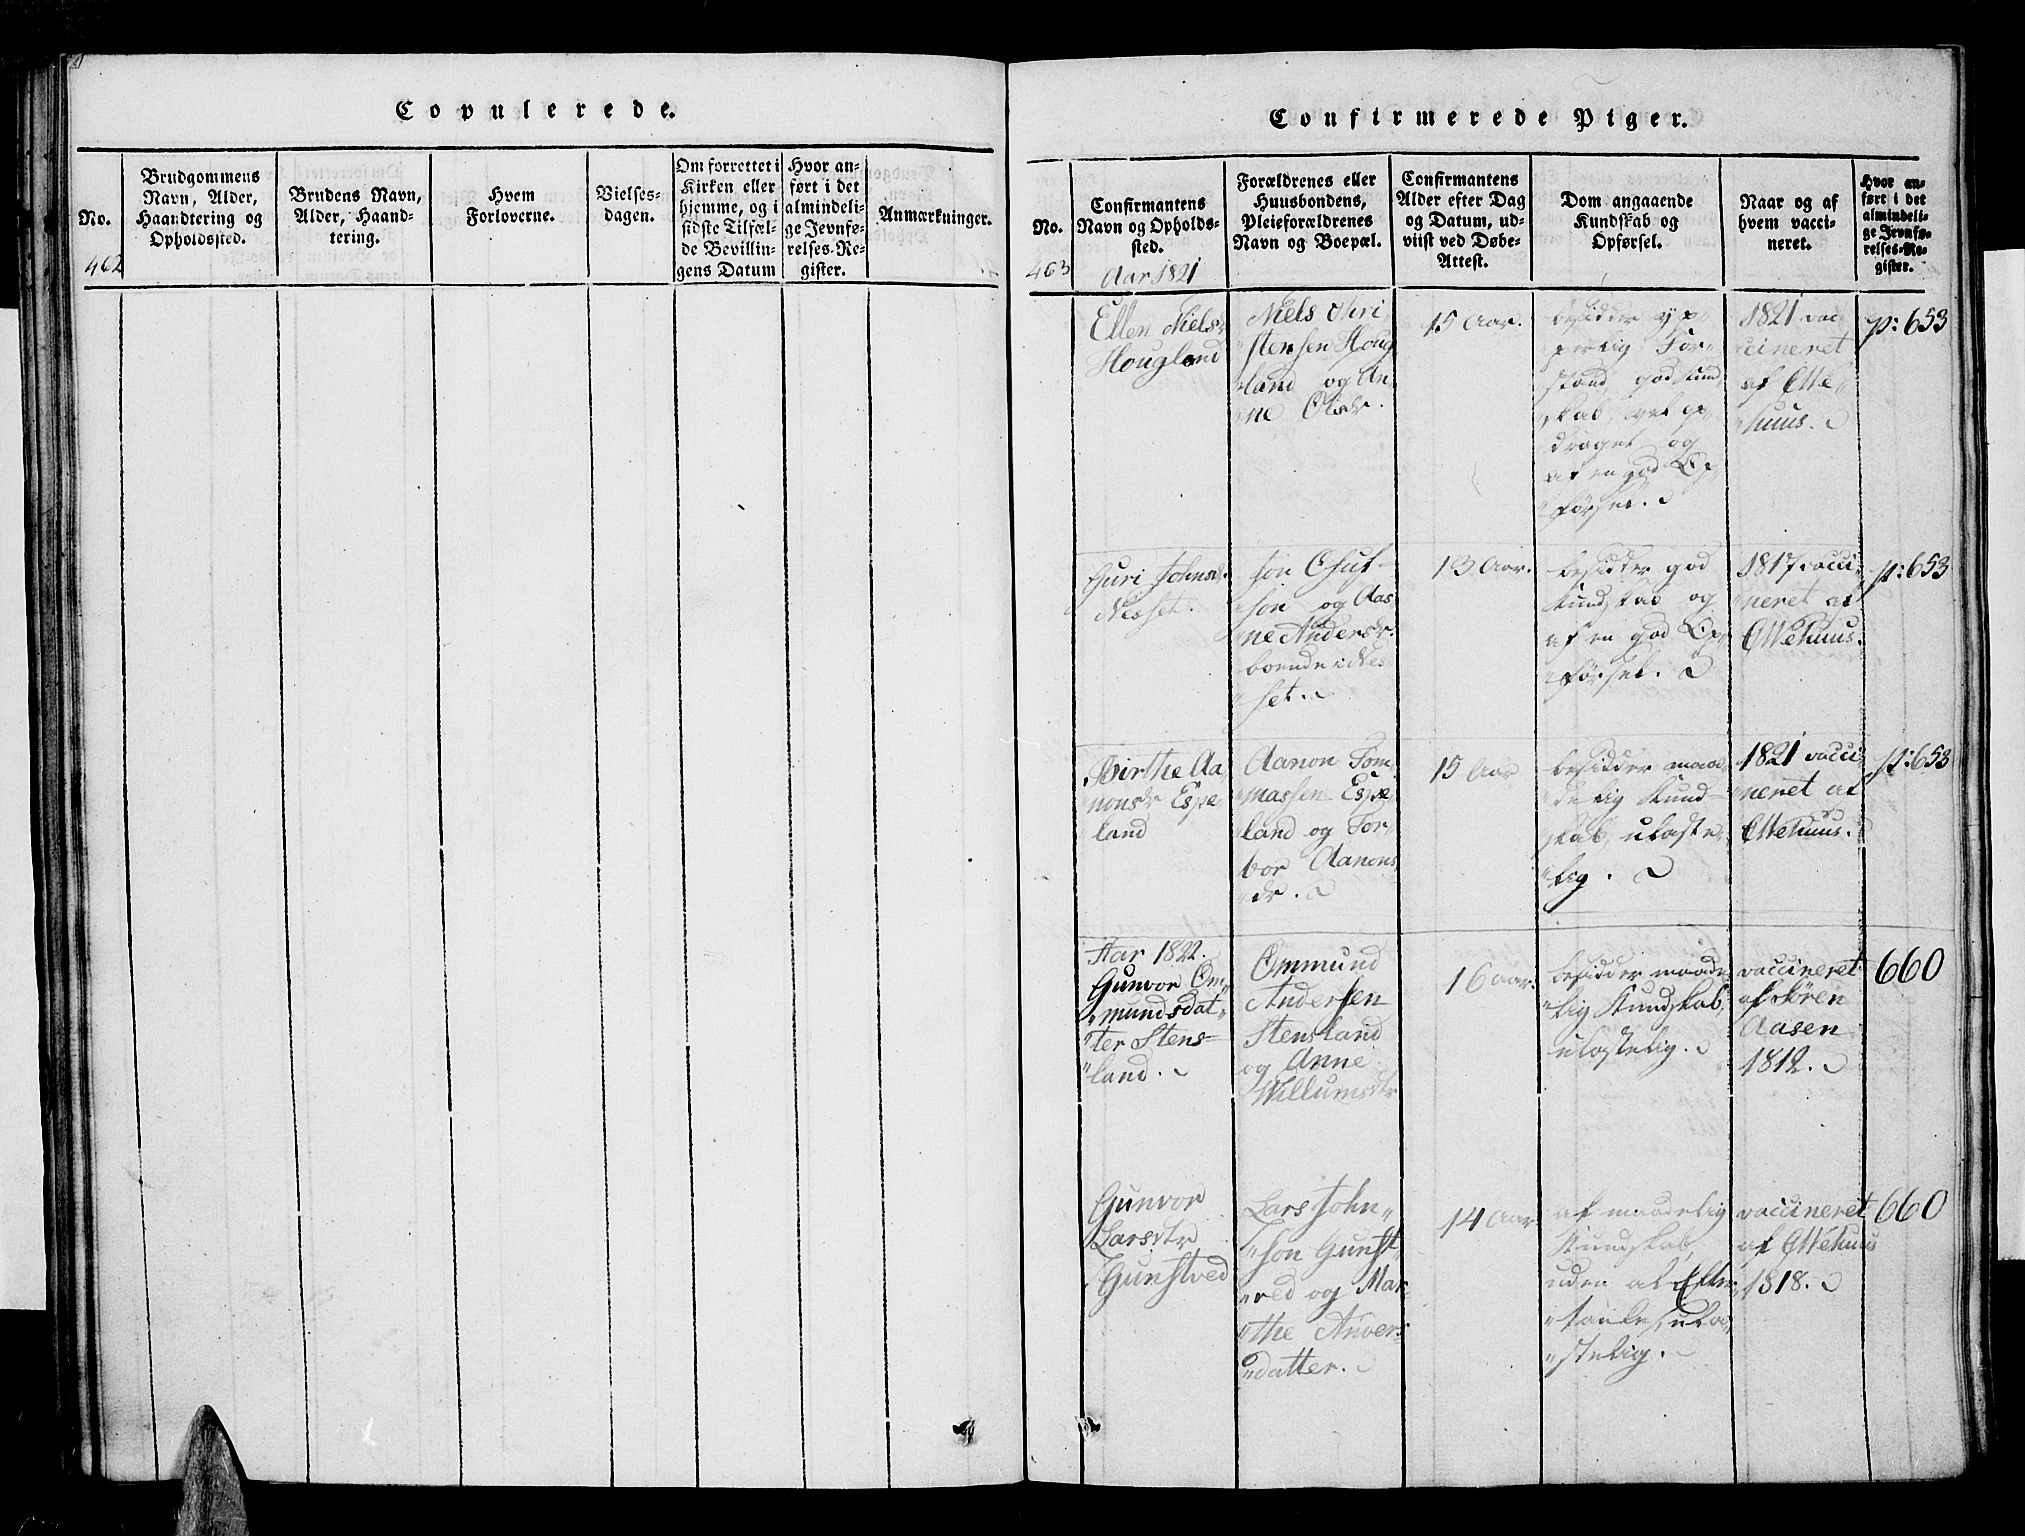 Copulerede.
No.
Brudgommens
Navn, Alder,
Haandtering og
Opholdssted.
Brudens Navn,
Alder, Haand-
tering.
Hvem
Forloverne.
Vielses-
dagen.
Om forrettet i
Kirken eller
hjemme, og i
sidste Tilfæl-
de Bevillin-
gens Datum
Hvor an-
ført i det
almindeli-
ge Jevnfø-
relses-Re-
gister.
Anmærkninger.
462
Confirmerede Piger.
No.
Confirmantens
Navn og Opholds-
sted.
Forældrenes eller
Huusbondens,
Pleieforældrenes
Navn og Boepæl.
Confirmantens
Alder efter Dag
og Datum, ud-
viist ved Døbe-
Attest.
Dom angaaende
Kundskab og
Opførsel.
Naar og af
hvem vacci-
neret.
Hvor an-
ført i det
almindeli-
ge Jevnfø-
relses-Re-
gister.
463
Aar 1821
Ellen Nielsdr
Hougland
Niels Chri
stensen Houg
land og An
ne Olsdr.
15 Aar.
besidder yp
perlig For
stand, god Kund
skab, vel op
draget og
af en god Op
førsel.
1821 vac
cineret
af Otte
huus.
p: 653
Guri Johnsdr.
Nesset.
Jon
son og Aas
ne Andersdr.
boende i Nes
set.
13 Aar.
besidder god
Kundskab og
af en god Op
førsel.
1817 vacci
neret af
Ottehuus.
p: 653
Birthe Aa
nonsdr Espe
land
Aanon Tom
massen Espe
land og Tor
bor Aanons
dr.
15 Aar
besidder maa
delig Kund-
skab, ulaste
lig.
1821 vacci
neret af
Ottehuus.
p: 653
Aar 1822.
Gunvor Om
mundsdat
ter Stens=
land.
Ommund
Andersen
Stensland
og Anne
Willumsdtr
16 aar.
besidder maade
lig Kundskab,
ulastelig.
vaccineret
af Sören
Aasen
1812.
660
Gunvor
Larsdtr
Gunstved
Lars John
son Gunst
ved og Mar
the Anders
datter.
14 Aar
af maadelig
Kundskab,
uden al Efter
tanke, ula
stelig.
vaccineret
af Ottehuus
1818.
660